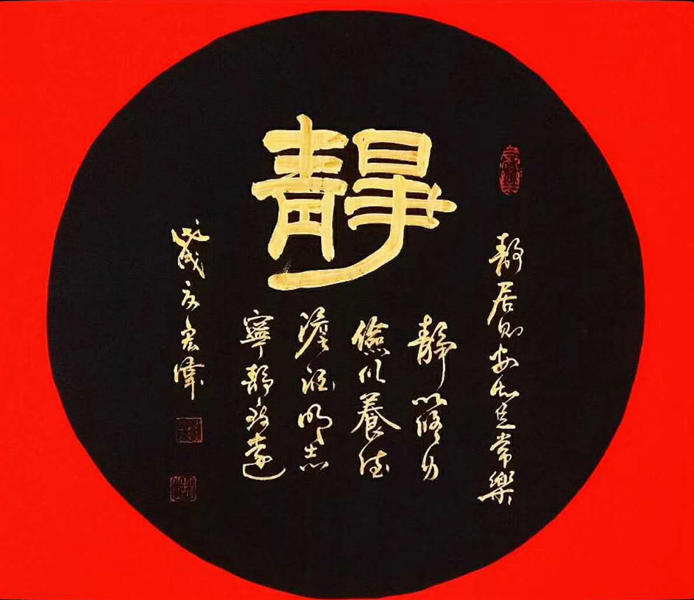 靜
靜居则安知足常樂
靜以修身
儉以養德
澹泊明志
寧靜致遠
戊戌宏偉